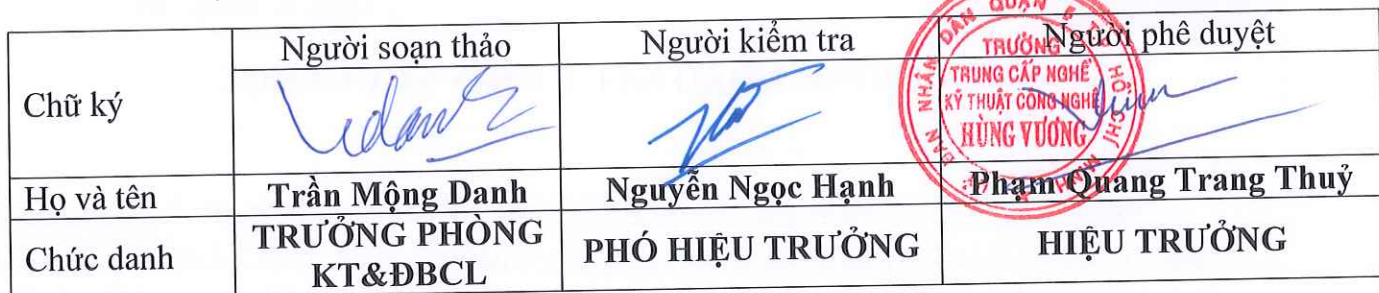 Người soạn thảo Người kiểm tra Người phê duyệt
Chữ ký
TRƯỜNG
TRUNG CẤP NGHỀ
KỸ THUẬT CÔNG NGHỆ
HÙNG VƯƠNG
BAN NHÂN DÂN QUẬN 5 T HỒ CHÍ MINH
Họ và tên Trần Mộng Danh Nguyễn Ngọc Hạnh Phạm Quang Trang Thuỷ
Chức danh TRƯỞNG PHÒNG KT&ĐBCL PHÓ HIỆU TRƯỞNG HIỆU TRƯỞNG